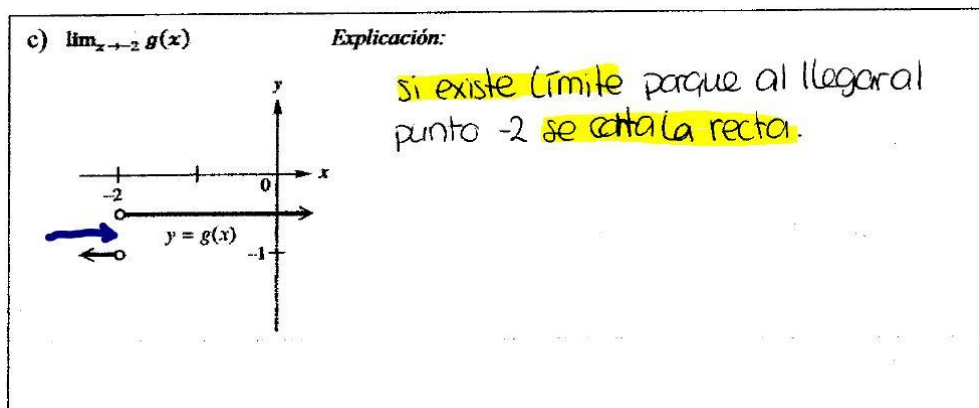 c) lim_{x→-2} g(x)
Explicación:
si existe límite porque al llegar al
punto -2 se corta la recta.
y
0
x
-2
y = g(x)
-1